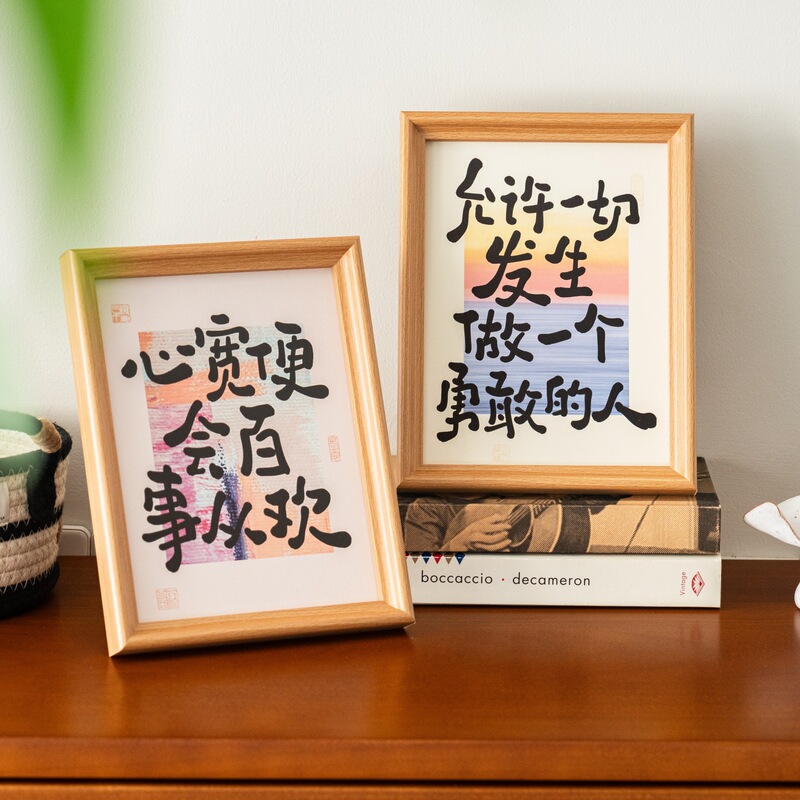 心宽便
会百
事从欢
允许一切
发生
做一个
勇敢的人
boccaccio · decameron
Vintage